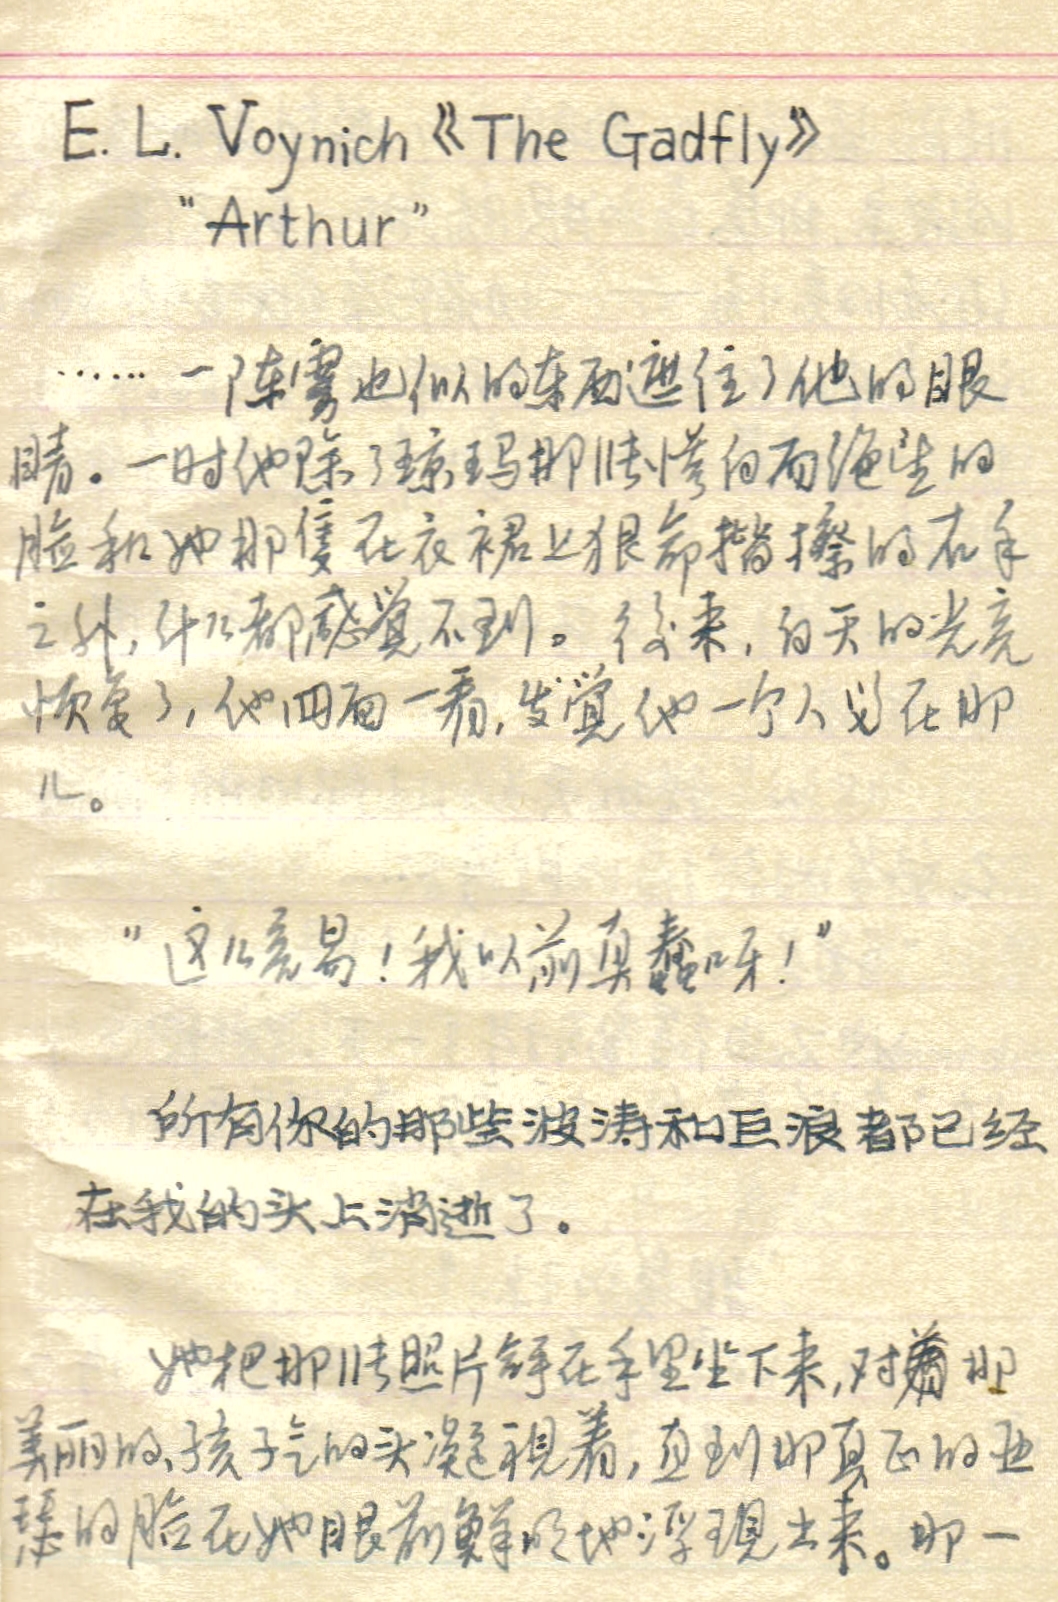 E. L. Voynich《The Gadfly》
“Arthur”
……一阵雾也似的东西遮住了他的眼
睛。一时他除了琼玛那张惨白而绝望的
脸和她那隻在衣裙上狠命揩擦的右手
之外，什么都感觉不到。後来，白天的光亮
恢复了，他四面一看，发觉他一个人留在那
儿。
“这么容易！我以前真蠢呀！”
所有你的那些波涛和巨浪都已经
在我的头上消逝了。
她把那张照片拿在手里坐下来，对着那
美丽的、孩子气的头凝視着，直到那真正的亚
瑟的脸在她眼前鮮明地浮現出来。那一